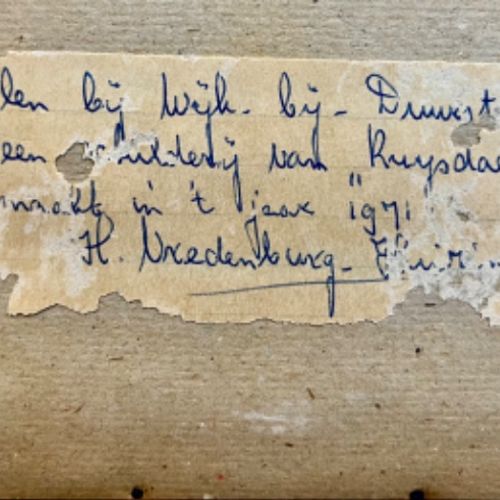 len bij Wijk- bij- Duurst
een schilderij van Ruysda
maakt in 't jaar 1971
H. Vredenburg-